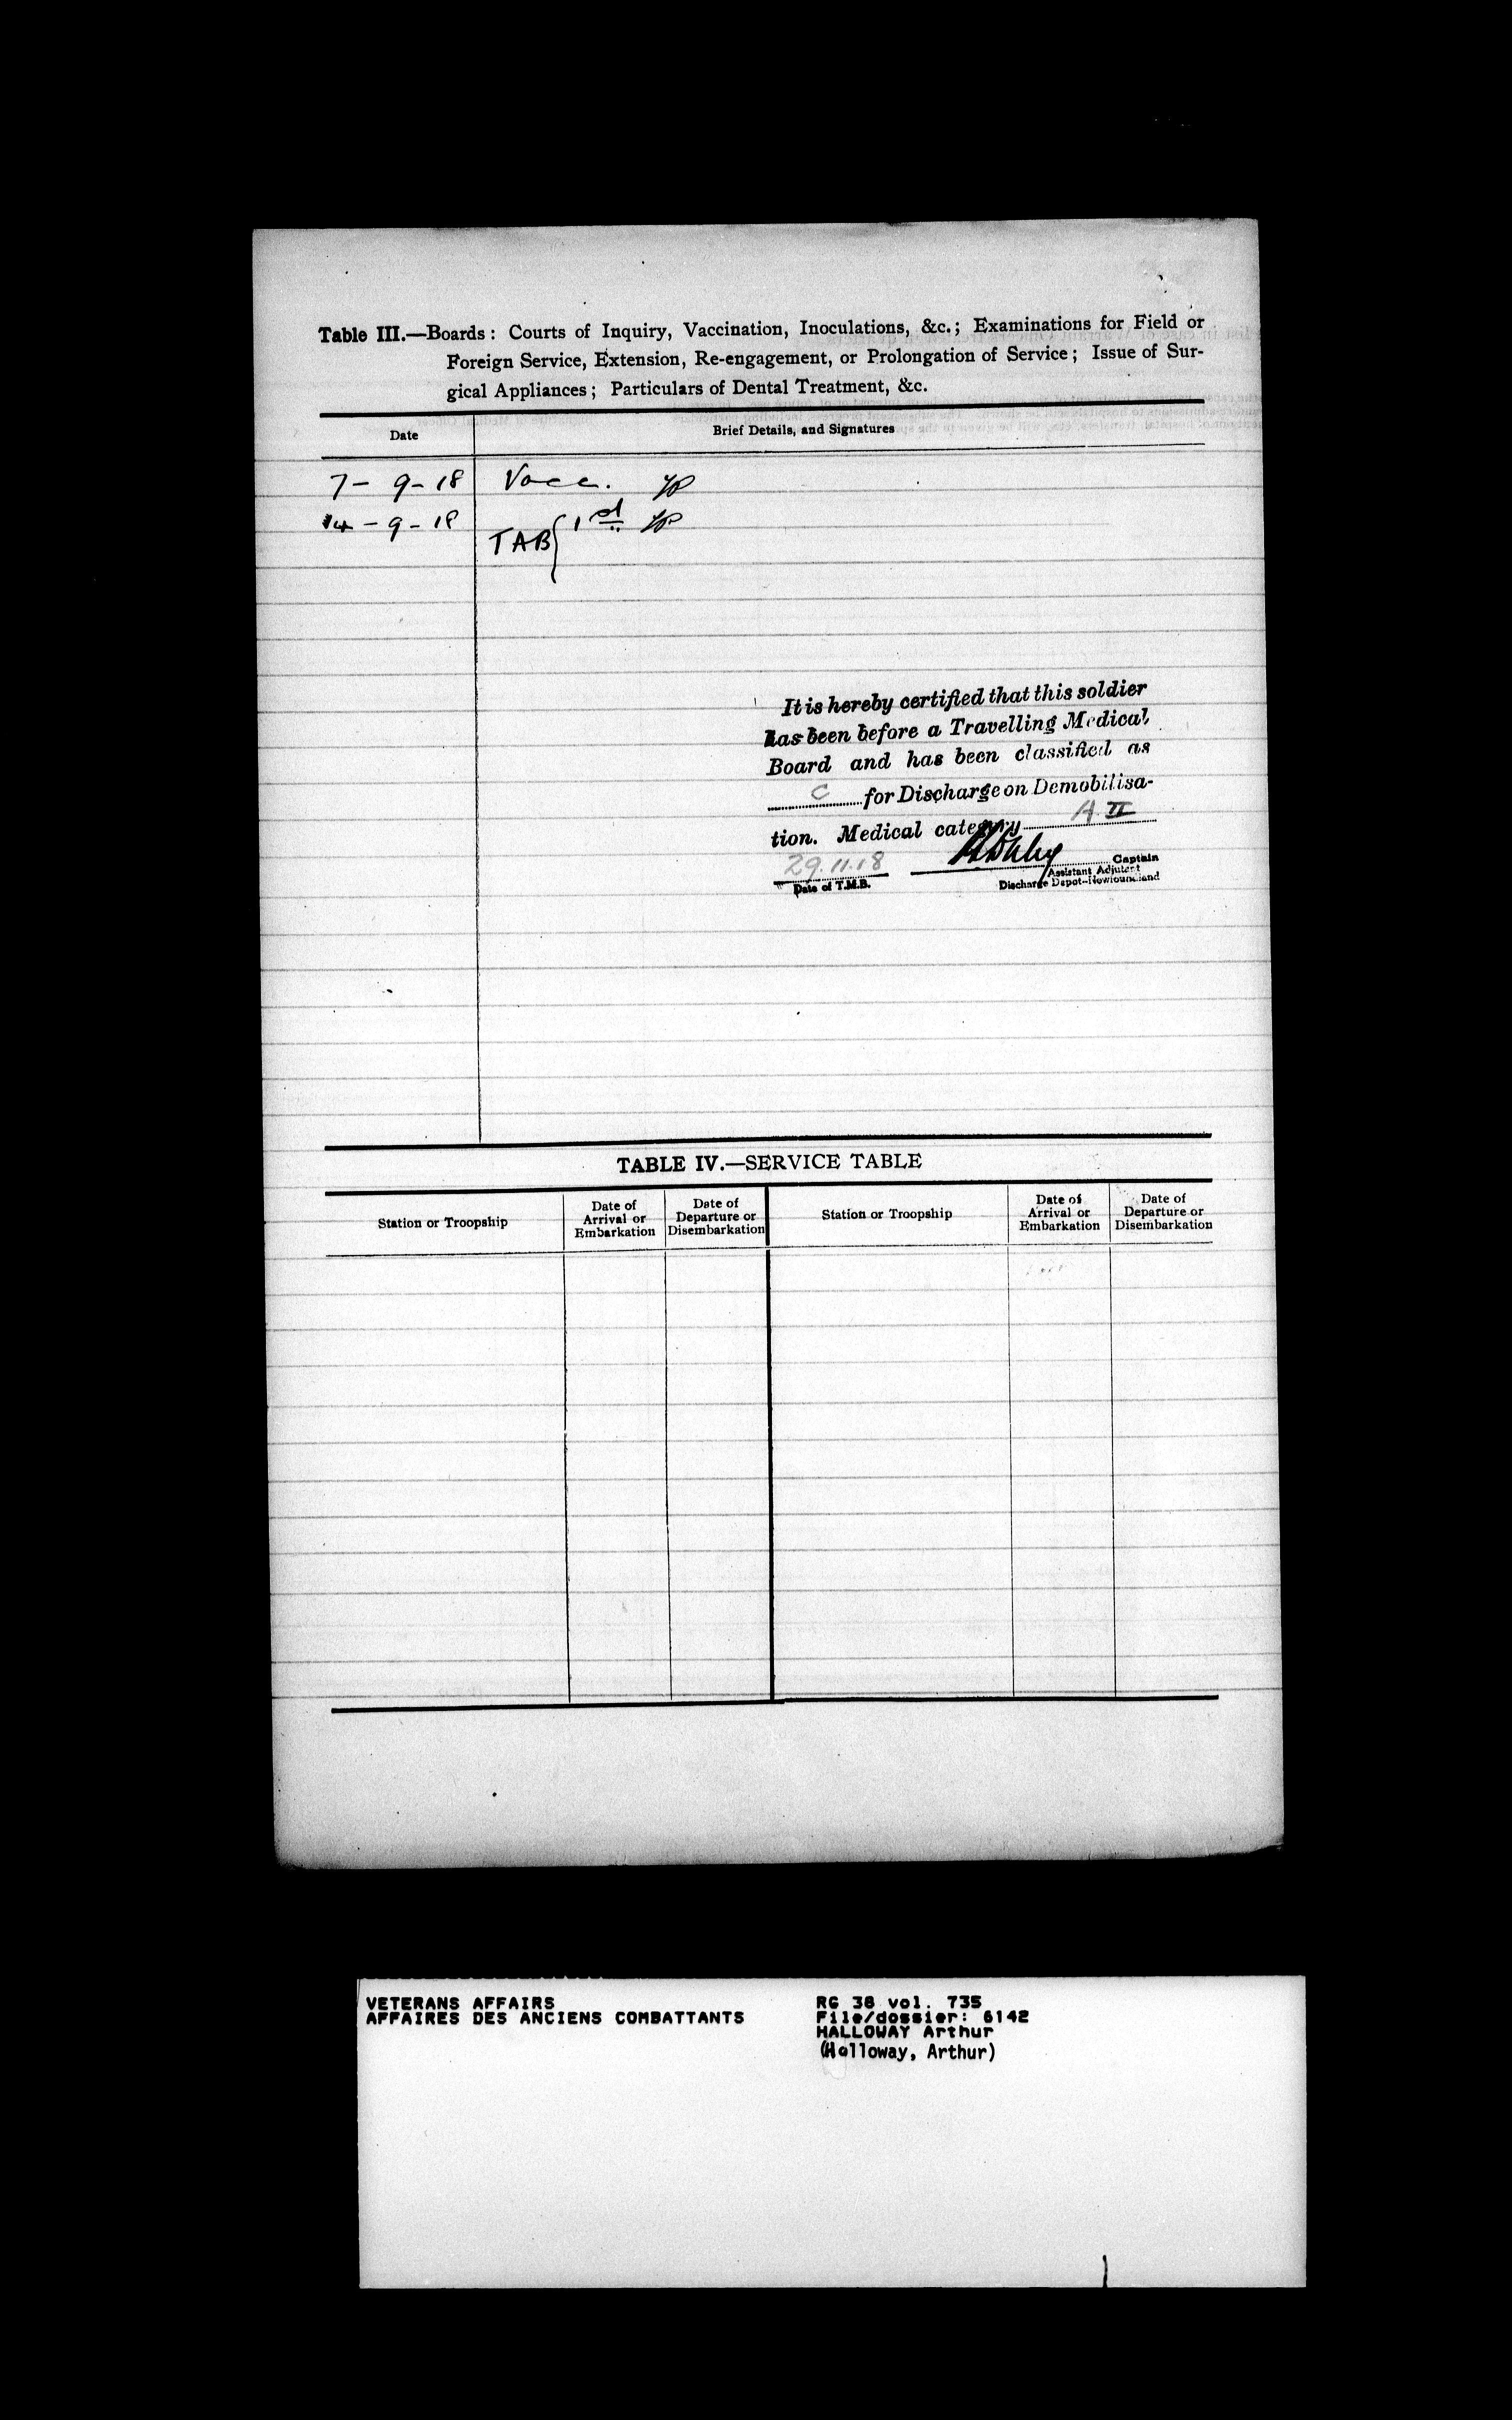 Table III.—Boards: Courts of Inquiry, Vaccination, Inoculations, &c.; Examinations for Field or
Foreign Service, Extension, Re-engagement, or Prolongation of Service; Issue of Sur-
gical Appliances; Particulars of Dental Treatment, &c.
Date Brief Details, and Signatures
7 - 9 - 18 Vacc.
14 - 9 - 18 1st
TAB
It is hereby certified that this soldier
has been before a Travelling Medical
Board and has been classified as
C for Discharge on Demobilisa-
tion. Medical category A II
29.11.18
Captain
Assistant Adjutant
Date of T.M.B. Discharge Depot-Newfoundland
TABLE IV.—SERVICE TABLE
Station or Troopship
Date of
Arrival or
Embarkation
Date of
Departure or
Disembarkation
Station or Troopship
Date of
Arrival or
Embarkation
Date of
Departure or
Disembarkation
VETERANS AFFAIRS
AFFAIRES DES ANCIENS COMBATTANTS
RG 38 vol. 735
File/dossier: 6142
HALLOWAY Arthur
(Holloway, Arthur)